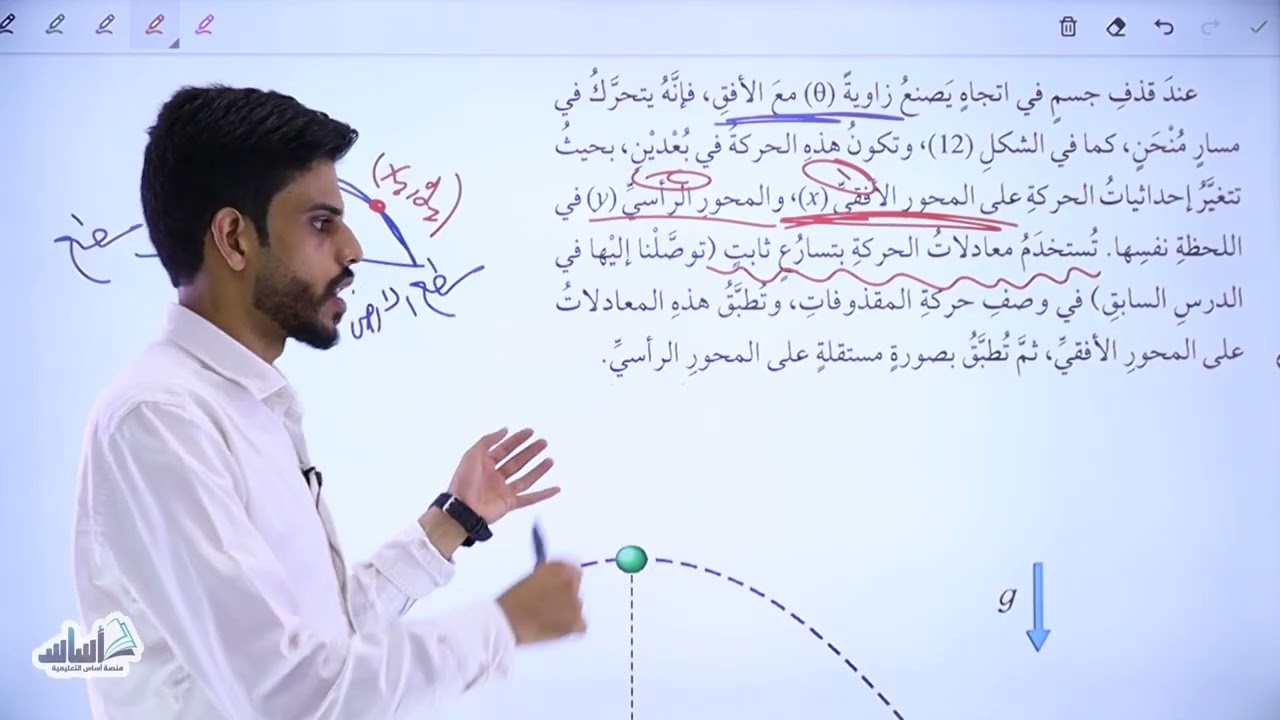 عندَ قذفِ جسمٍ في اتجاهٍ يَصنعُ زاويةً (θ) معَ الأفقِ، فإنَّهُ يتحرَّكُ في
مسارٍ مُنْحَنٍ، كما في الشكلِ (12)، وتكونُ هذهِ الحركةُ في بُعْديْنِ، بحيثُ
تتغيَّرُ إحداثياتُ الحركةِ على المحورِ الأفقيِّ (x)، والمحورِ الرأسيِّ (y) في
اللحظةِ نفسِها. تُستخدَمُ معادلاتُ الحركةِ بتسارُعٍ ثابتٍ (توصَّلْنا إليْها في
الدرسِ السابقِ) في وصفِ حركةِ المقذوفاتِ، وتُطبَّقُ هذهِ المعادلاتُ
على المحورِ الأفقيِّ، ثمَّ تُطبَّقُ بصورةٍ مستقلةٍ على المحورِ الرأسيِّ.
g
أساس
منصة أساس التعليمية